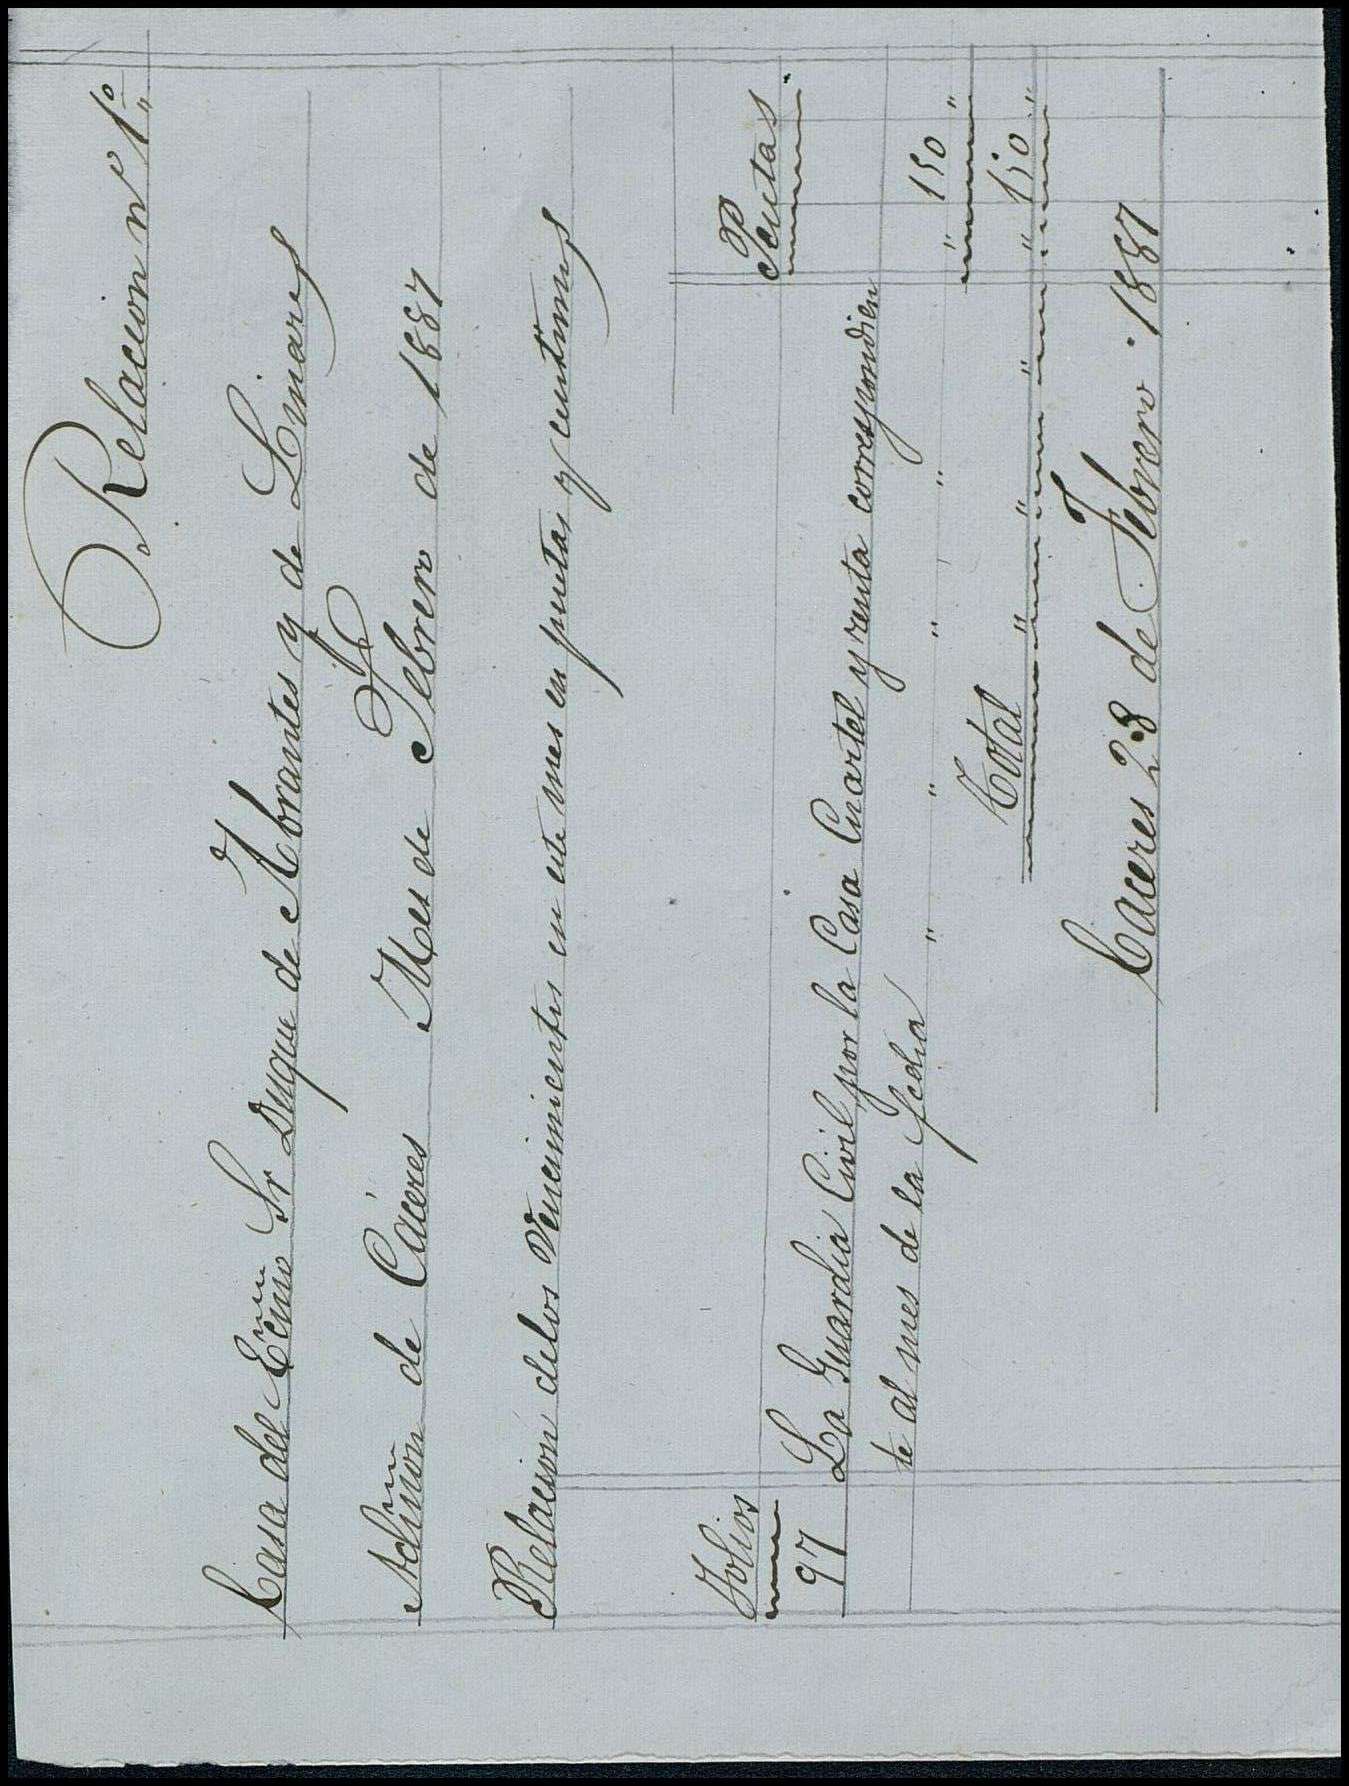 Relacion nº 1º
Casa del Ecmo Sr Duque de Abrantes y de Linares
Admon de Cáceres Mes de Febrero de 1887
Relacion de los Vencimientos en este mes en pesetas y centimos
Folios Pesetas
97 La Guardia Civil, por la Casa Cuartel y renta correspondien
te al mes de la fecha " " " " " 150 "
Total " " " " 150 "
Caceres 28 de Febrero 1887